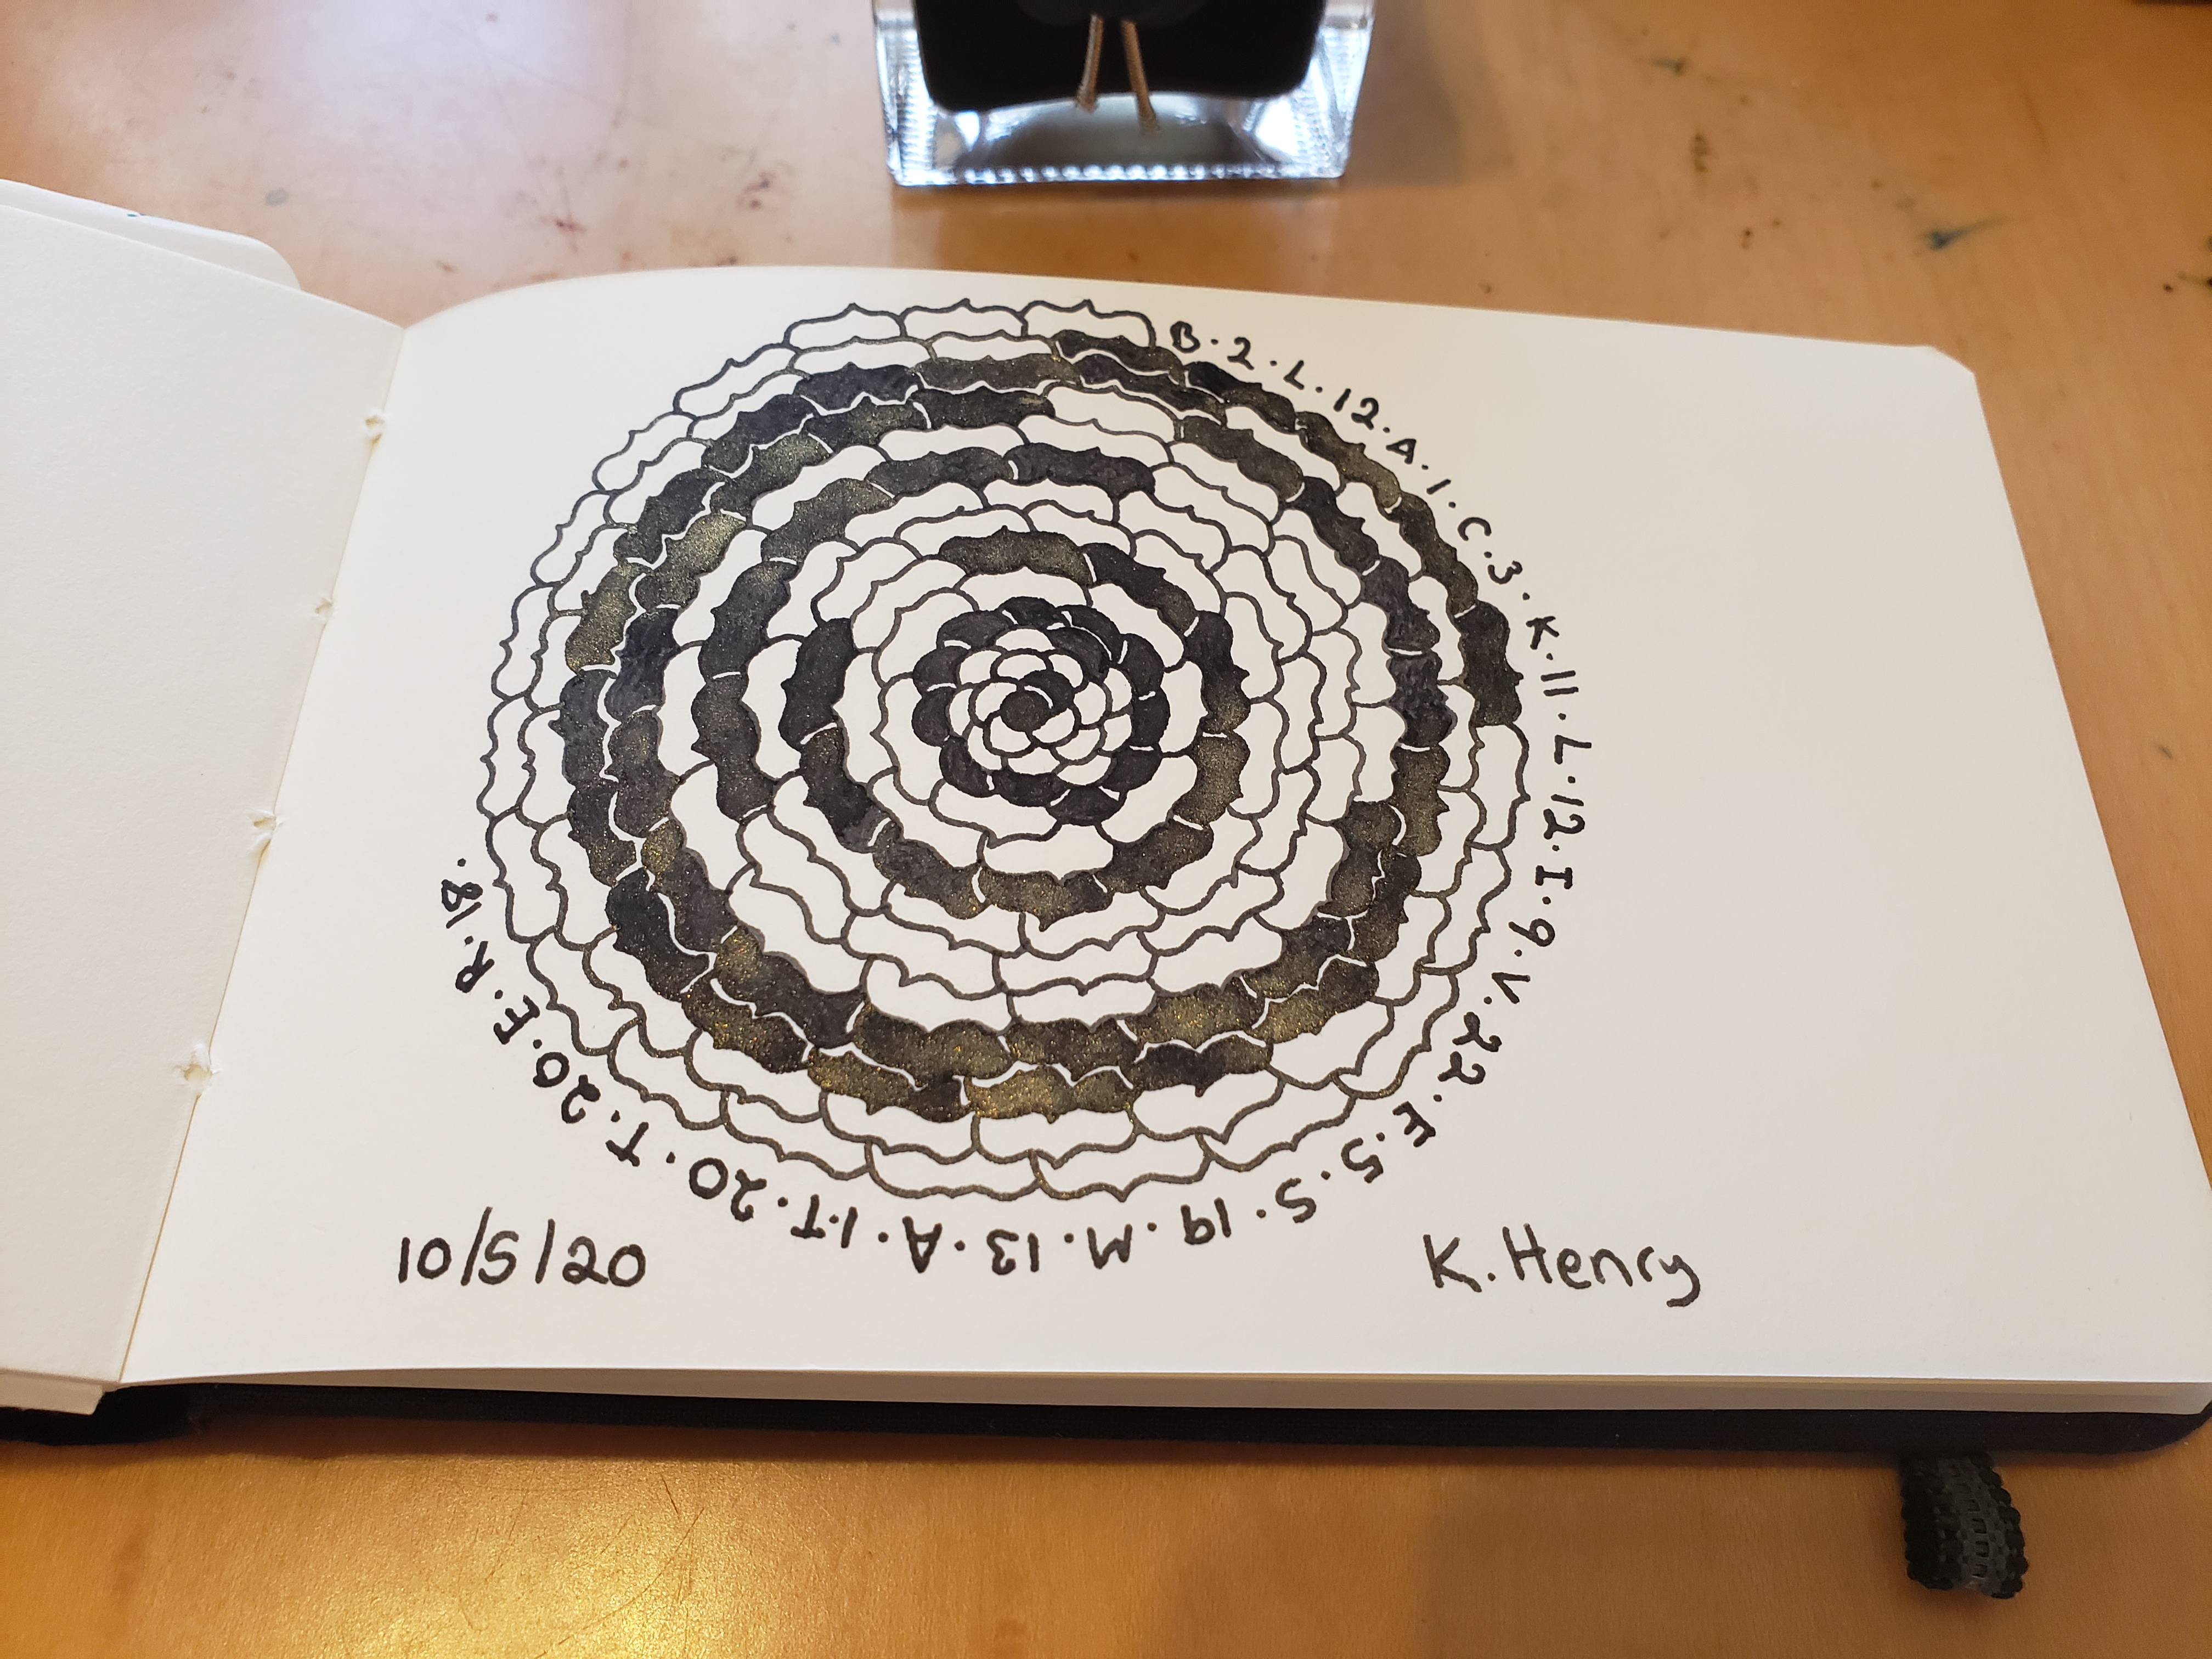 B·2·L·12·A·1·C·3·K·11·L·12·I·9·V·22·E·5·S·19·M·13·A·1·T·20·T·20·E·R·18·
10/5/20
K. Henry